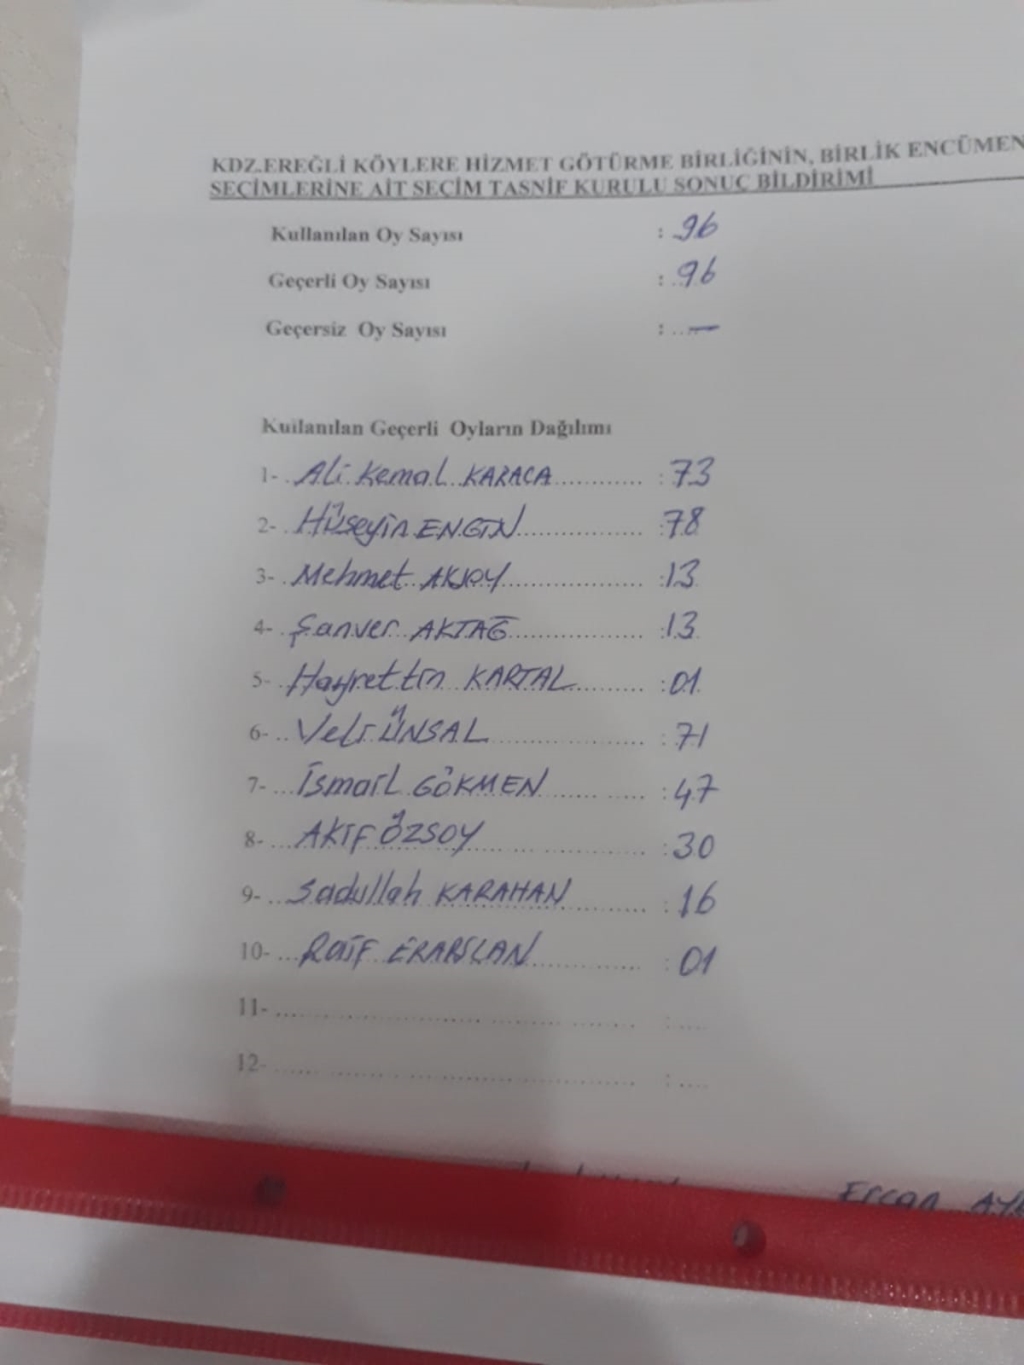 KDZ.EREĞLİ KÖYLERE HİZMET GÖTÜRME BİRLİĞİNİN, BİRLİK ENCÜMEN
SEÇİMLERİNE AİT SEÇİM TASNİF KURULU SONUÇ BİLDİRİMİ
Kullanılan Oy Sayısı : 96
Geçerli Oy Sayısı : 96
Geçersiz Oy Sayısı : ..—
Kullanılan Geçerli Oyların Dağılımı
1- Ali Kemal KARACA : 73
2- Hüseyin ENGİN : 78
3- Mehmet AKSOY : 13
4- Şanver AKTAĞ : 13
5- Hayrettin KARTAL : 01
6- Veli ÜNSAL : 71
7- İsmail GÖKMEN : 47
8- AKİF ÖZSOY : 30
9- Sadullah KARAHAN : 16
10- RAİF ERARSLAN : 01
11- :
12- :
Ercan